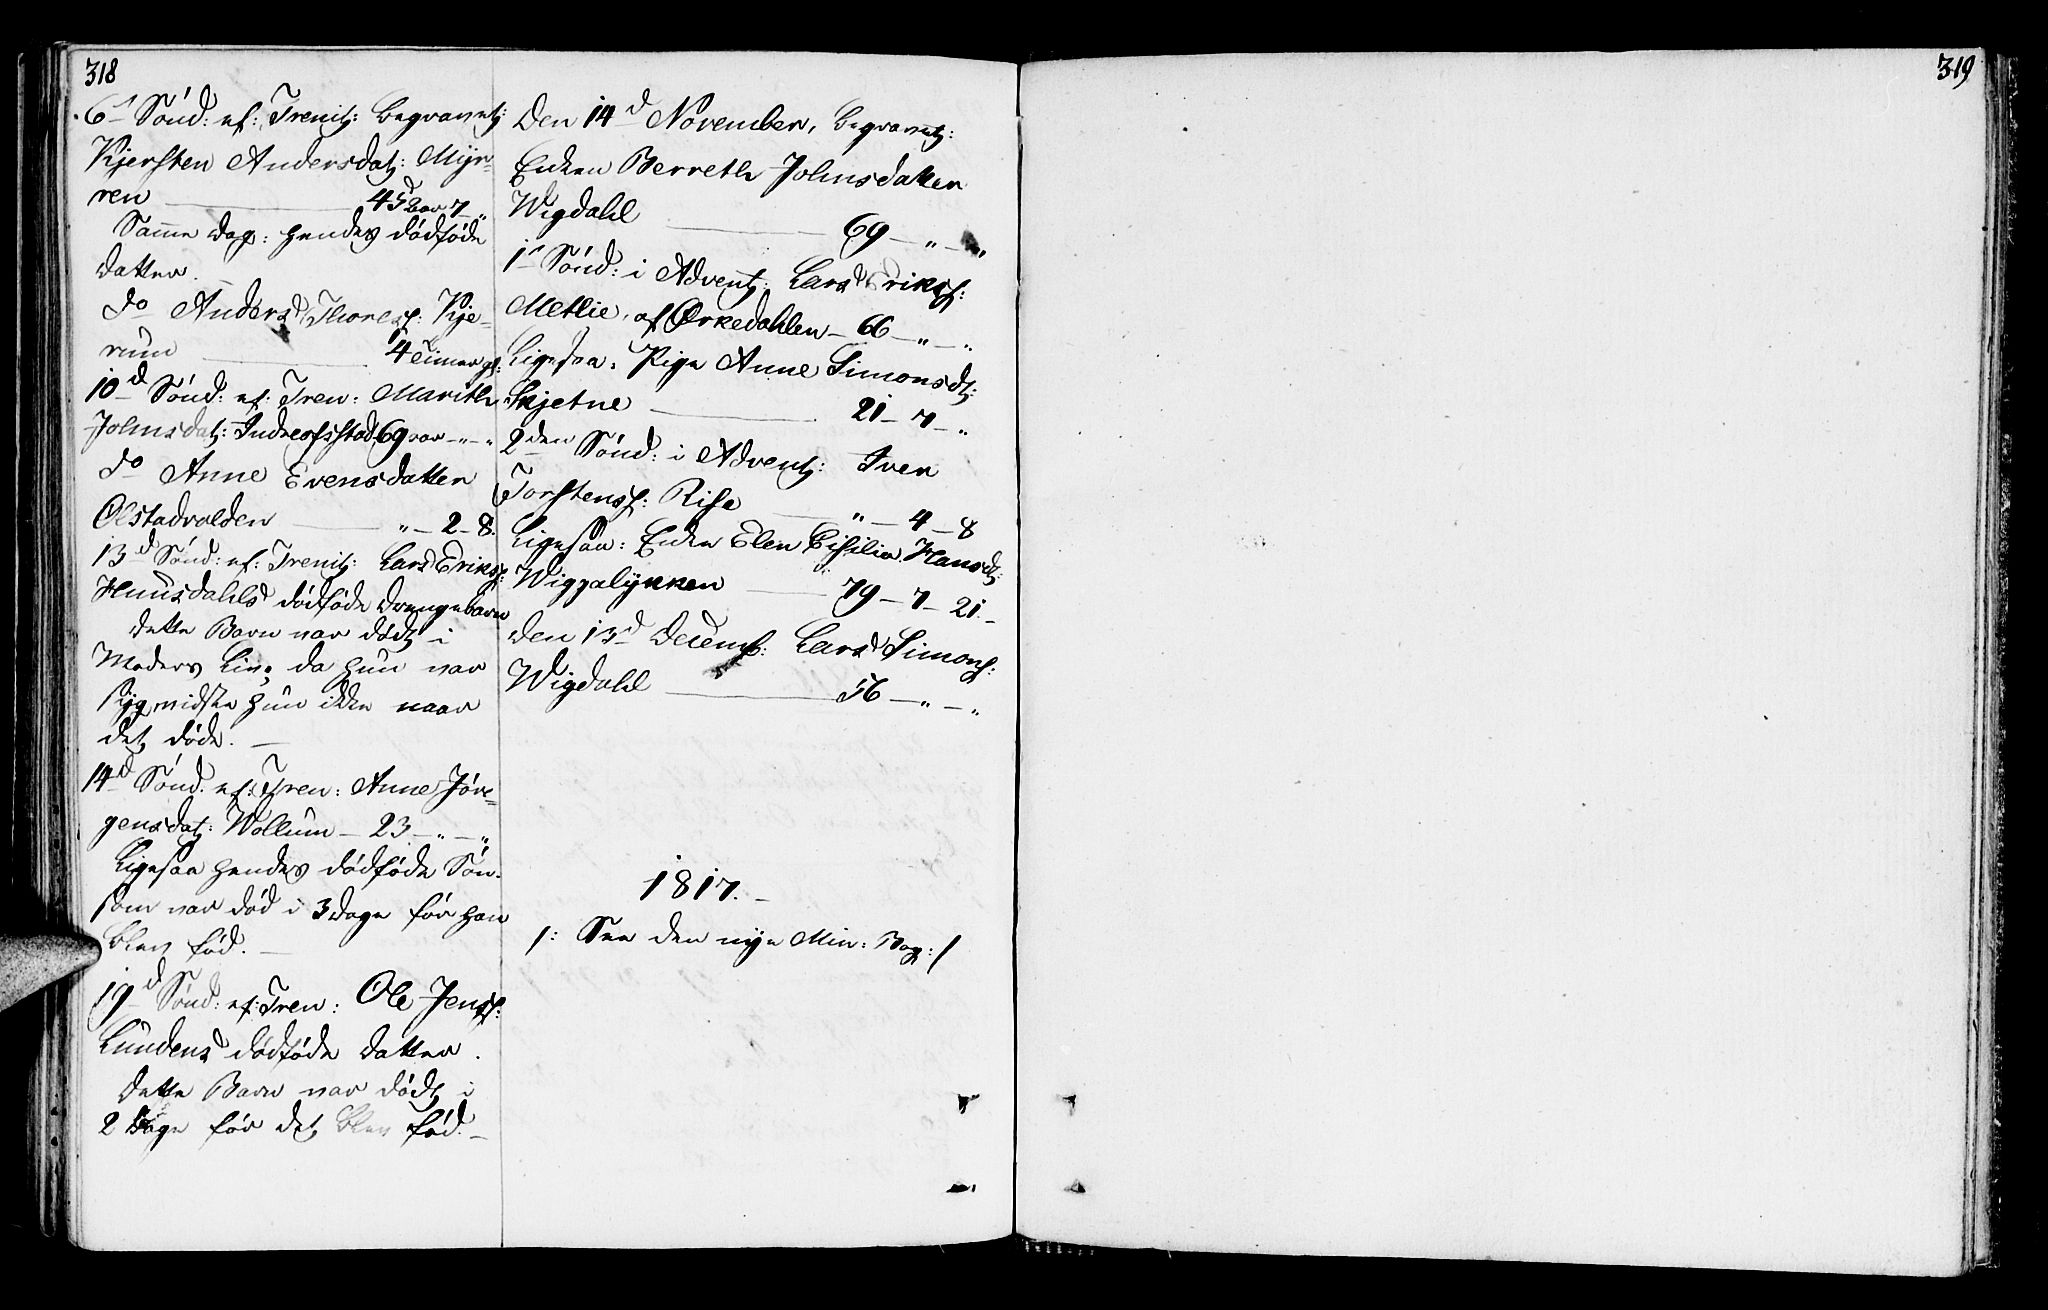 318
6te Sönd: ef: Trenit: begravet:
Kjersten Andersdat: Myr-
ren 45 Aar 7 "
Samme Dag: hendes dødføde
Datter.
do Anders Thoress: Kje-
rum 4 Timer gl:
10d Sönd: ef: Tren: Marith
Johnsdat: Indreofsstad 69 Aar - " - "
do Anne Evensdatter
Olstadvolden " - 2 - 8.
13d Sönd: ef: Trenit: Lars Eriks:
Huusdahls dødføde Drengebarn
dette Barn var dødt i
Moders Liv; da hun var
syg vidste hun ikke naar
det døde.
14d Sönd. ef: Tren: Anne Jör-
gensdat: Wollum - 23 - " - "
Ligesaa hendes dødføde Sön
som var død i 3 Dage för han
blev fød.
19d Sönd: ef: Tren: Ole Jenss:
Lundens dødføde Datter.
dette Barn var dødt i
2 Dage för det blev fød.
Den 14d November, begravet:
Enken Berreth Johnsdatter
Wigdahl 69 - " - "
1te Sönd: i Advent: Lars Erikss:
Metlie, af Ørkedahlen - 66 - " - "
Ligesaa: Pige Anne Simonsdt:
Skjetne 21 - 7 - "
2den Sönd: i Advent: Iver
Torstenss: Rise " - 4 - 8
Ligesaa: Enke Elen Cisilia Hansdt:
Wiggalykken 79 - 7 - 21.
den 13d Decemb: Lars Simons:
Wigdahl 56 - " - "
1817.
/: See den nye Min: Bog :/
319